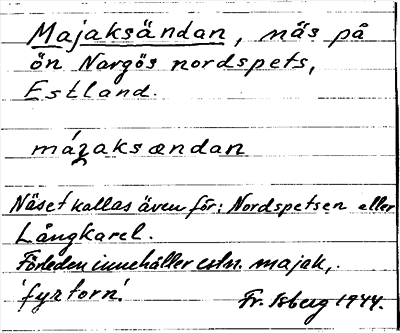 Majaksändan, näs på
ön Nargös nordspets,
Estland.
májaksændan
Näset kallas även för: Nordspetsen eller
Långkarel.
Förleden innehåller estn. majak,
'fyrtorn'.
Fr. Isberg 1944.